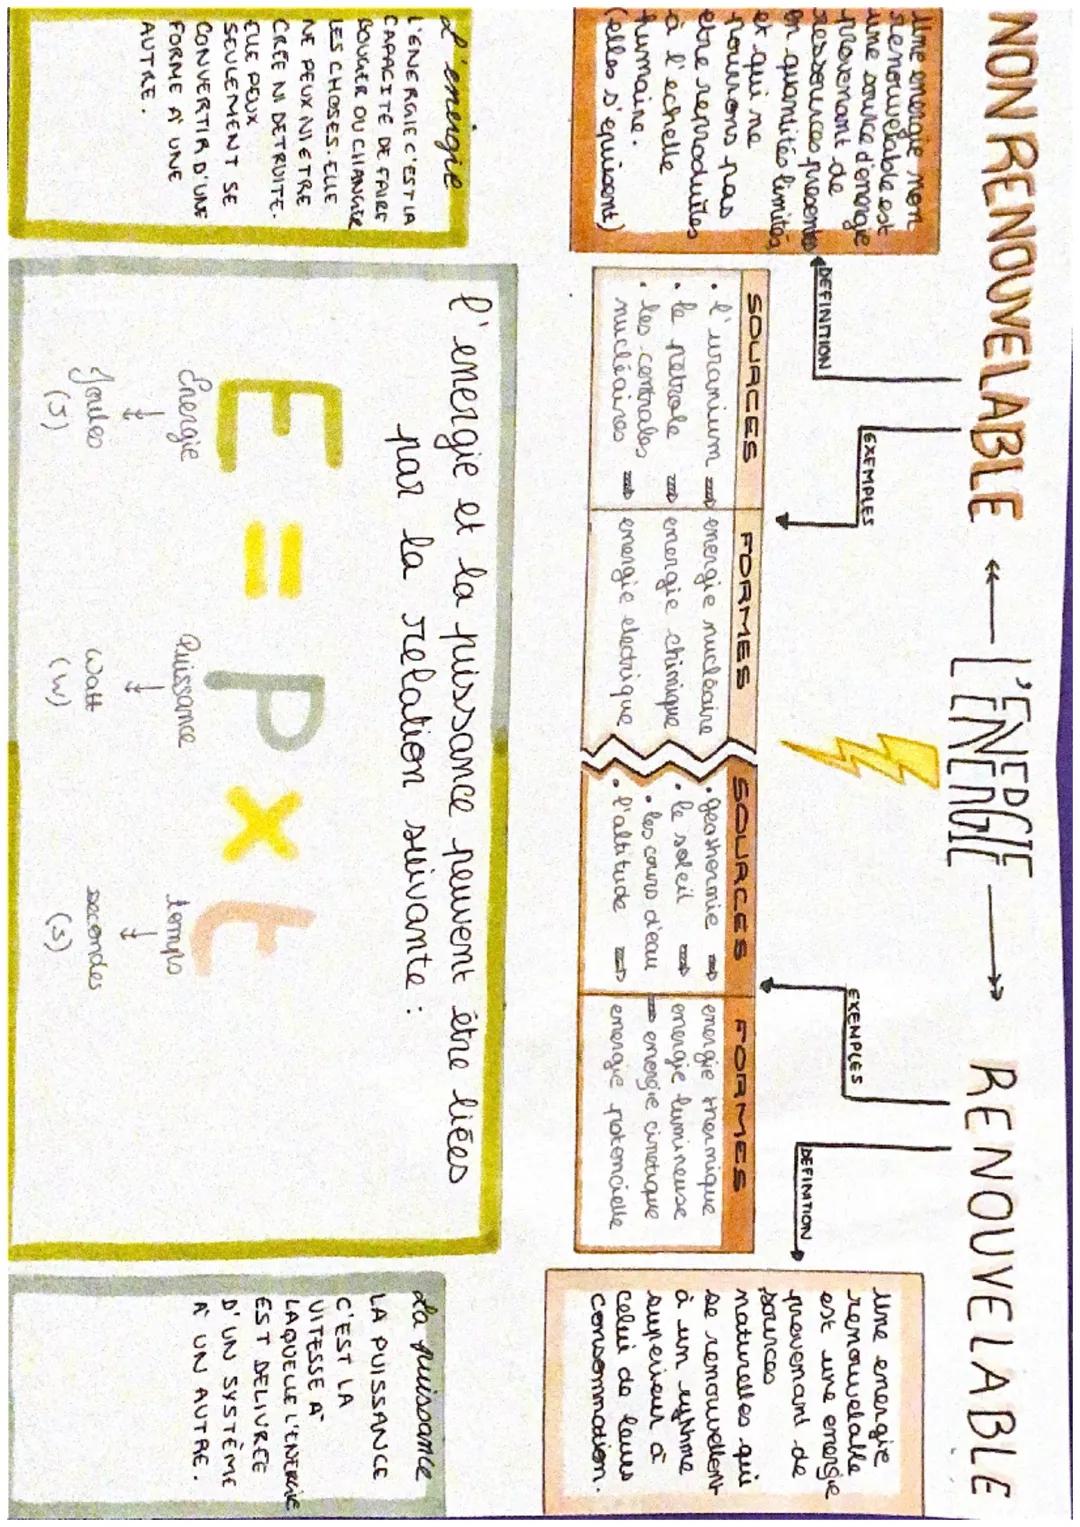 NON RENOUVELABLE
L'ENERGIE
RENOUVELABLE
DEFINITION
EXEMPLES
EXEMPLES
DEFINITION
Une energie non
renouvelable est
une source d'energie
provenant de
ressources presentes
en quantités limités
et qui ne
pourrons pas
etre reproduites
à l'echelle
humaine.
(elles s'epuisent)
SOURCES
• l'uranium
• le petrole
• les centrales
nucléaires
FORMES
energie nucléaire
energie chimique
energie electrique
SOURCES
• geothermie
• le soleil
• les cours d'eau
• l'altitude
FORMES
energie thermique
energie lumineuse
energie cinetique
energie potencielle
Une energie
renouvelable
est une energie
provenant de
sources
naturelles qui
se renouvellent
à un rythme
superieur à
celui de leurs
consommation.
L'energie
L'ENERGIE C'EST LA
CAPACITÉ DE FAIRE
BOUGER OU CHANGER
LES CHOSES. ELLE
NE PEUX NI ETRE
CRÉE NI DETRUITE.
ELLE PEUX
SEULEMENT SE
CONVERTIR D'UNE
FORME A UNE
AUTRE.
l'energie et la puissance peuvent être liées
par la relation suivante :
E = P x t
Energie
Puissance
temps
Joules
Watt
secondes
(J)
(W)
(s)
La puissance
LA PUISSANCE
C'EST LA
VITESSE À
LAQUELLE L'ENERGIE
EST DELIVRÉE
D'UN SYSTÈME
À UN AUTRE.